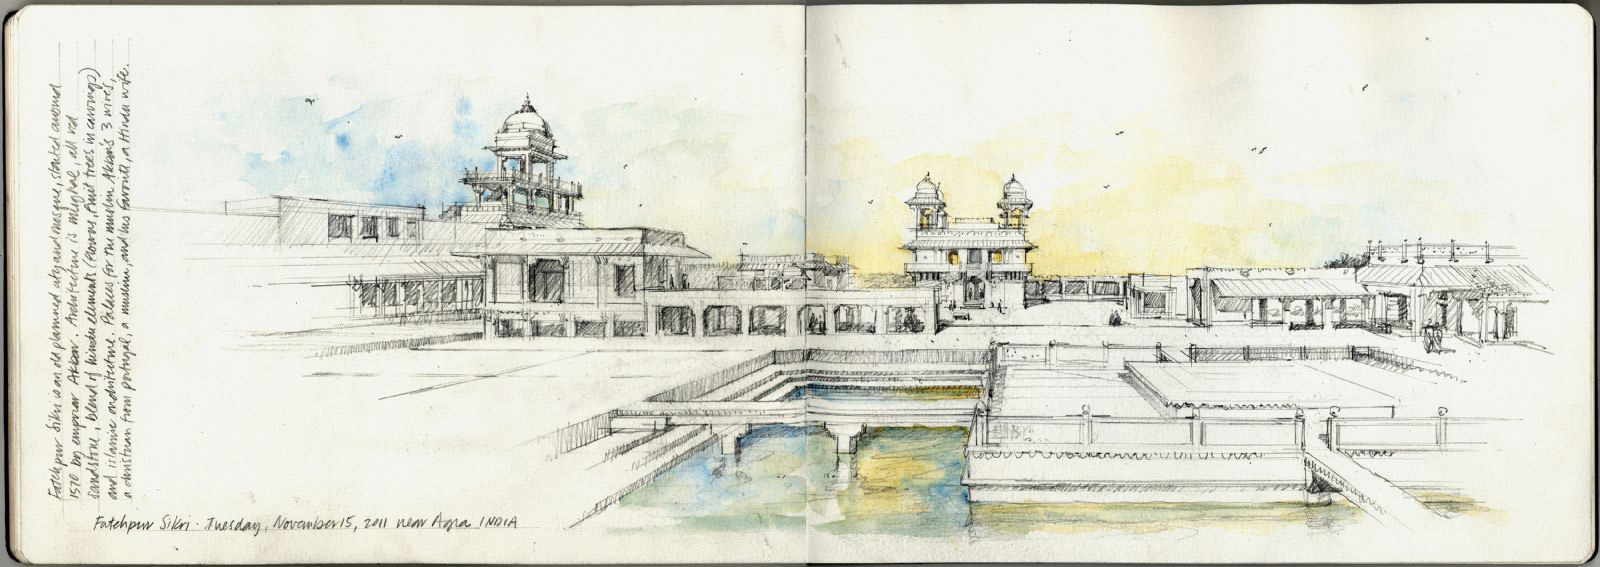 Fatehpur Sikri is an old planned city and mosque, started around
1570 by emperor Akbar. Architecture is mughal, all red
sandstone, blend of hindu elements (flowers, fruit trees in carvings)
and islamic architecture. Palaces for the muslim Akbar's 3 wives,
a christian from portugal, a muslim, and his favorite, a Hindu wife.
Fatehpur Sikri · Tuesday, November 15, 2011 near Agra INDIA